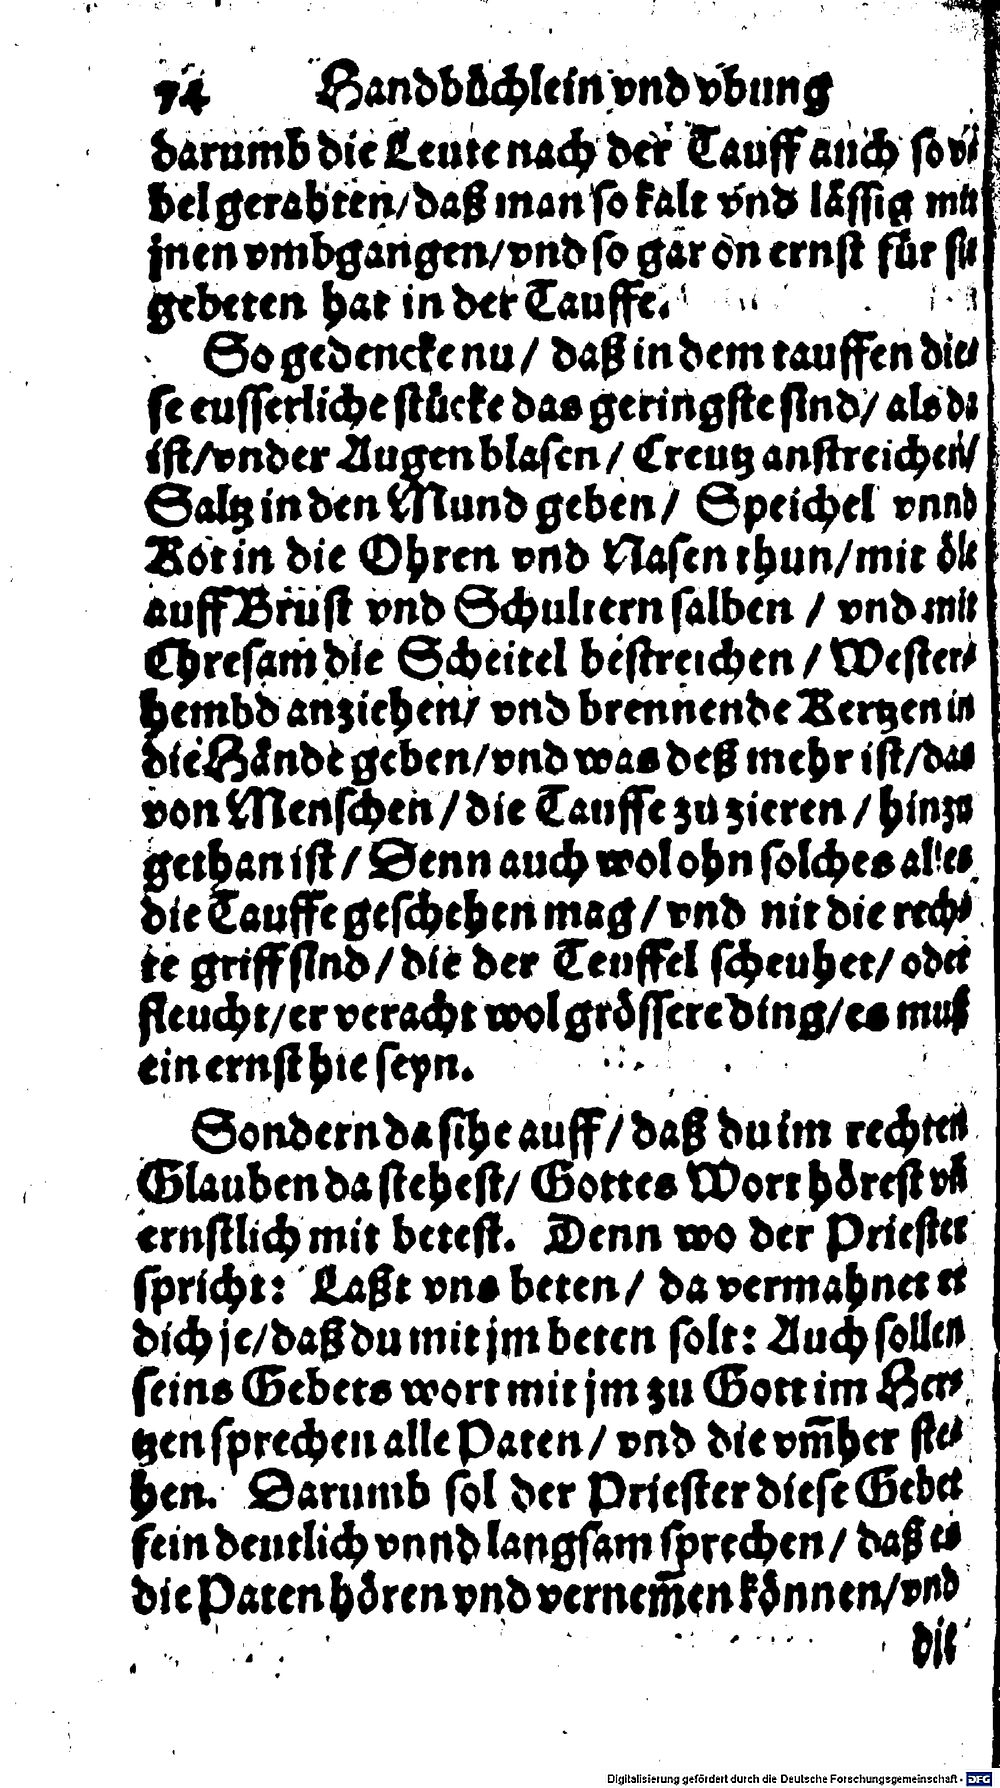 74 Handbüchlein vnd vbung
darumb die Leute nach der Tauff auch so v̈⸗
bel gerahten/ daß man so kalt vnd lässig mit
jnen vmbgangen/ vnd so gar on ernst für sie
gebeten hat in der Tauffe.
So gedencke nu/ daß in dem tauffen die⸗
se eusserliche stücke das geringste sind/ als da
ist/ vnder Augen blasen/ Creutz anstreichen/
Saltz in den Mund geben/ Speichel vnnd
Kot in die Ohren vnd Nasen thun/ mit öle
auff Brust vnd Schultern salben / vnd mit
Chresam die Scheitel bestreichen / Wester⸗
hembd anziehen/ vnd brennende Kertzen in
die Hände geben/ vnd was deß mehr ist/ das
von Menschen / die Tauffe zu zieren / hinzu
gethan ist / Denn auch wol ohn solches alles
die Tauffe geschehen mag / vnd nit die rech⸗
te griff sind / die der Teuffel scheuhet/ oder
fleucht/ er veracht wol grössere ding/ es muß
ein ernst hie seyn.
Sondern da sihe auff / daß du im rechten
Glauben da stehest/ Gottes Wort hörest vñ
ernstlich mit betest. Denn wo der Priester
spricht: Laßt vns beten / da vermahnet er
dich je/ daß du mit jm beten solt: Auch sollen
seins Gebets wort mit jm zu Gott im Her⸗
tzen sprechen alle Paten / vnd die vm̃her ste⸗
hen. Darumb sol der Priester diese Gebet
fein deutlich vnnd langsam sprechen / daß es
die Paten hören vnd vernem̃en können/ vnd
die
Digitalisierung gefördert durch die Deutsche Forschungsgemeinschaft - DFG